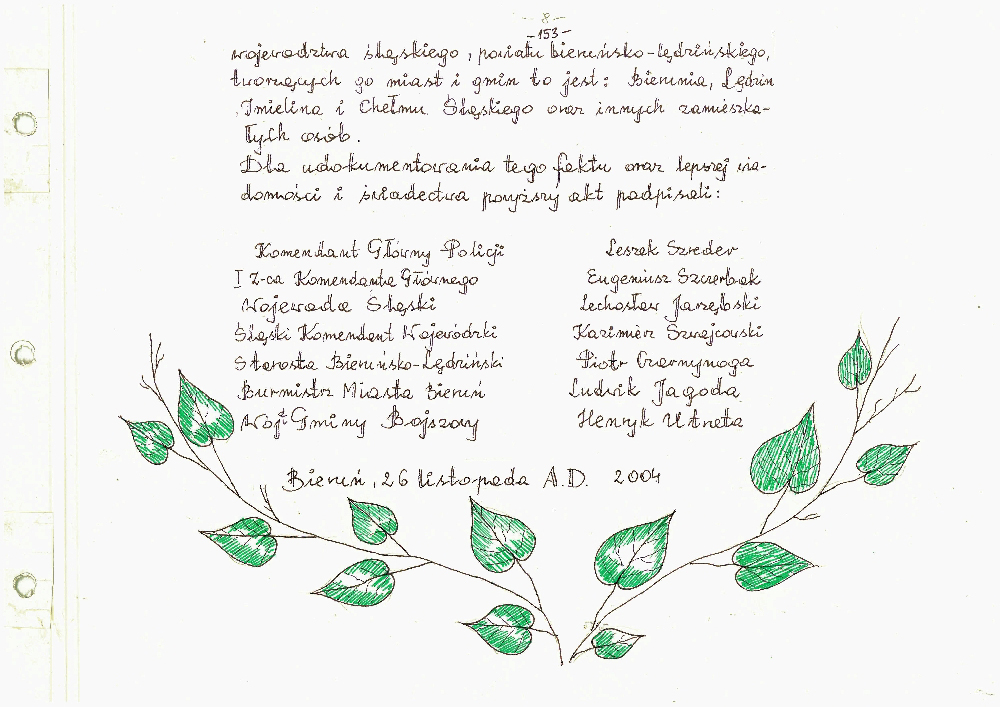 - 8 -
- 153 -
województwa śląskiego, powiatu bieruńsko-lędzińskiego,
tworzących go miast i gmin to jest: Bierunia, Lędzin
, Imielina i Chełmu Śląskiego oraz innych zamieszka-
łych osób.
Dla udokumentowania tego faktu oraz lepszej wia-
domości i świadectwa powyższy akt podpisali:
Komendant Główny Policji Leszek Szreder
I Z-ca Komendanta Głównego Eugeniusz Szczerbak
Wojewoda Śląski Lechosław Jarzębski
Śląski Komendant Wojewódzki Kazimierz Szwajcowski
Starosta Bieruńsko-Lędziński Piotr Czarnynoga
Burmistrz Miasta Bieruń Ludwik Jagoda
Wójt Gminy Bojszowy Henryk Utrata
Bieruń, 26 listopada A.D. 2004